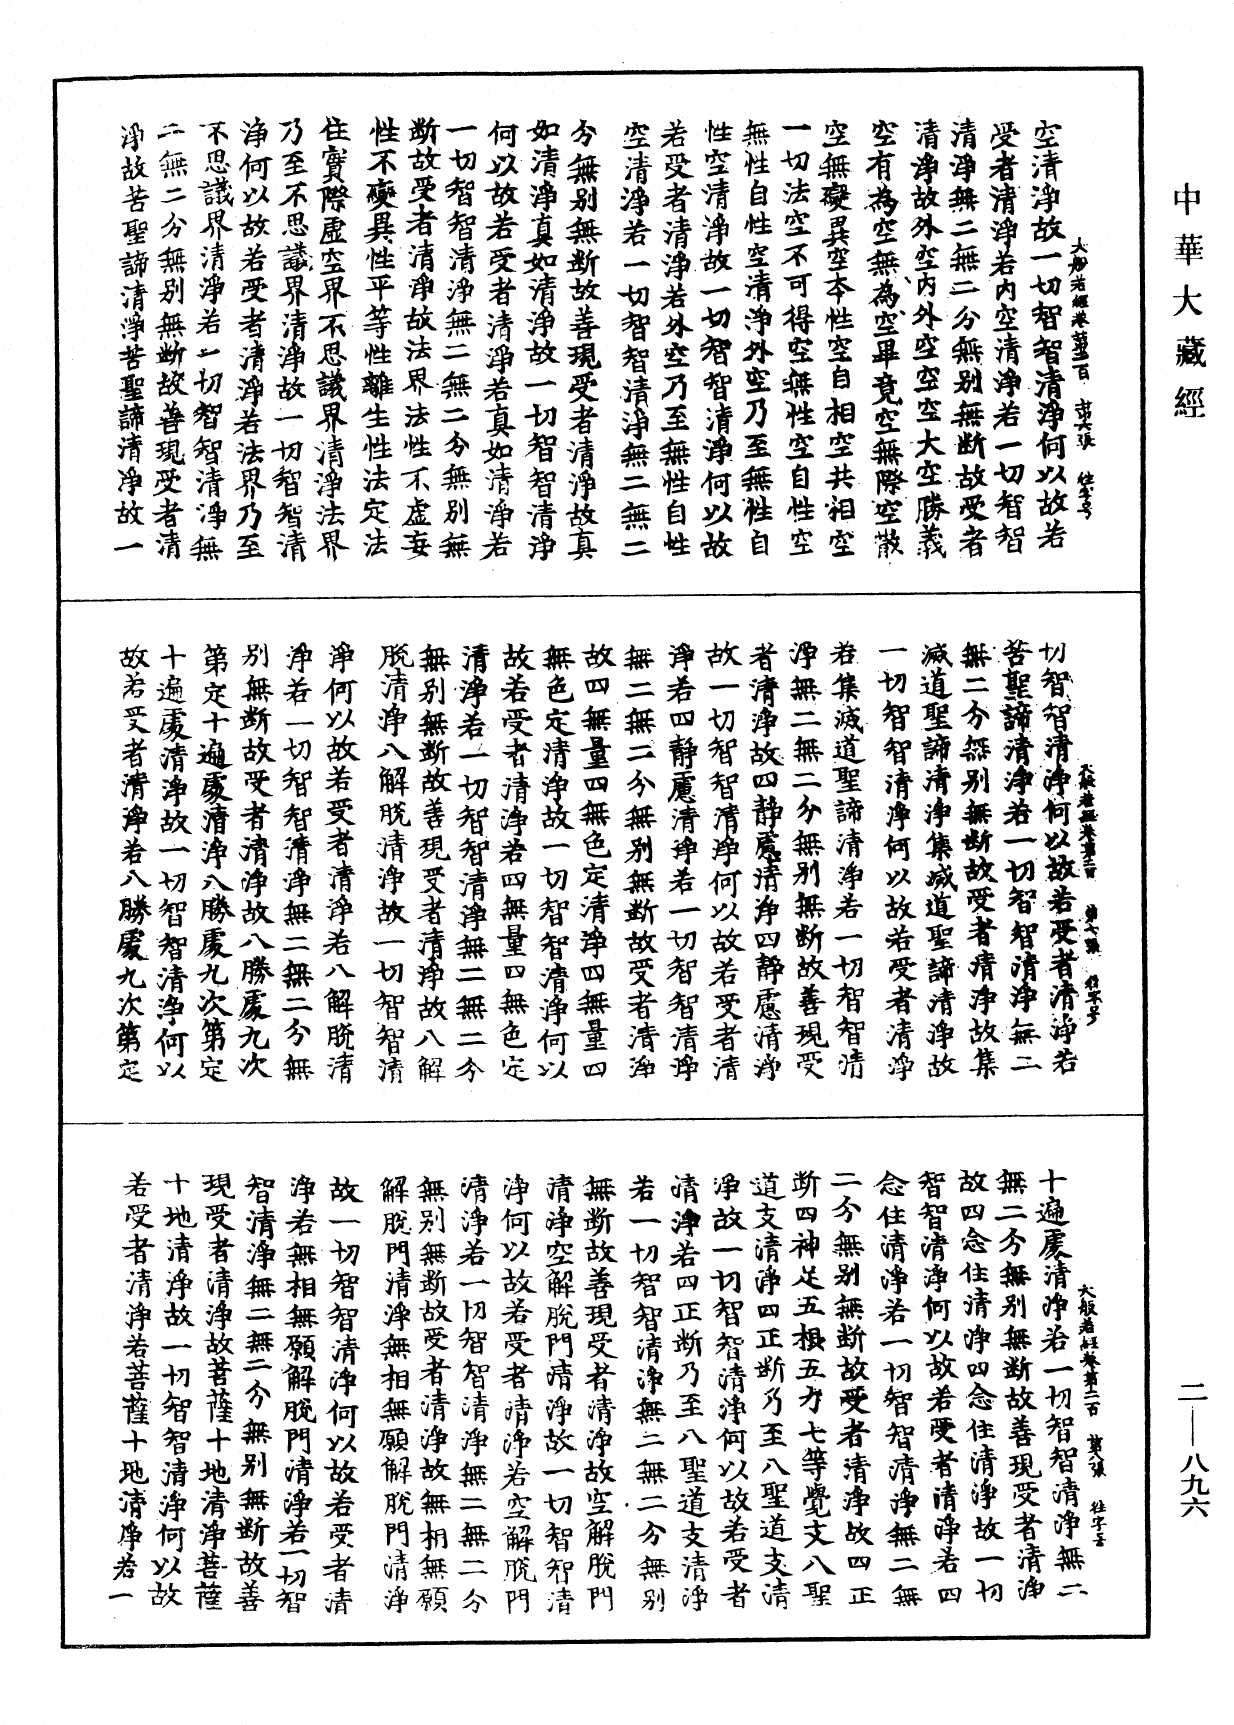 中華大藏經
大般若經卷第二百　第六張　往字号
空清淨故一切智智清淨何以故若
受者清淨若內空清淨若一切智智
清淨無二無二分無別無斷故受者
清淨故外空內外空空空大空勝義
空有為空無為空畢竟空無際空散
空無變異空本性空自相空共相空
一切法空不可得空無性空自性空
無性自性空清淨外空乃至無性自
性空清淨故一切智智清淨何以故
若受者清淨若外空乃至無性自性
空清淨若一切智智清淨無二無二
分無別無斷故善現受者清淨故真
如清淨真如清淨故一切智智清淨
何以故若受者清淨若真如清淨若
一切智智清淨無二無二分無別無
斷故受者清淨故法界法性不虛妄
性不變異性平等性離生性法定法
住實際虛空界不思議界清淨法界
乃至不思議界清淨故一切智智清
淨何以故若受者清淨若法界乃至
不思議界清淨若一切智智清淨無
二無二分無別無斷故善現受者清
淨故苦聖諦清淨苦聖諦清淨故一
大般若經卷第二百　第七張　往字号
切智智清淨何以故若受者清淨若
苦聖諦清淨若一切智智清淨無二
無二分無別無斷故受者清淨故集
滅道聖諦清淨集滅道聖諦清淨故
一切智智清淨何以故若受者清淨
若集滅道聖諦清淨若一切智智清
淨無二無二分無別無斷故善現受
者清淨故四靜慮清淨四靜慮清淨
故一切智智清淨何以故若受者清
淨若四靜慮清淨若一切智智清淨
無二無二分無別無斷故受者清淨
故四無量四無色定清淨四無量四
無色定清淨故一切智智清淨何以
故若受者清淨若四無量四無色定
清淨若一切智智清淨無二無二分
無別無斷故善現受者清淨故八解
脫清淨八解脫清淨故一切智智清
淨何以故若受者清淨若八解脫清
淨若一切智智清淨無二無二分無
別無斷故受者清淨故八勝處九次
第定十遍處清淨八勝處九次第定
十遍處清淨故一切智智清淨何以
故若受者清淨若八勝處九次第定
大般若經卷第二百　第八張　往字号
十遍處清淨若一切智智清淨無二
無二分無別無斷故善現受者清淨
故四念住清淨四念住清淨故一切
智智清淨何以故若受者清淨若四
念住清淨若一切智智清淨無二無
二分無別無斷故受者清淨故四正
斷四神足五根五力七等覺支八聖
道支清淨四正斷乃至八聖道支清
淨故一切智智清淨何以故若受者
清淨若四正斷乃至八聖道支清淨
若一切智智清淨無二無二分無別
無斷故善現受者清淨故空解脫門
清淨空解脫門清淨故一切智智清
淨何以故若受者清淨若空解脫門
清淨若一切智智清淨無二無二分
無別無斷故受者清淨故無相無願
解脫門清淨無相無願解脫門清淨
故一切智智清淨何以故若受者清
淨若無相無願解脫門清淨若一切智
智清淨無二無二分無別無斷故善
現受者清淨故菩薩十地清淨菩薩
十地清淨故一切智智清淨何以故
若受者清淨若菩薩十地清淨若一
二—八九六